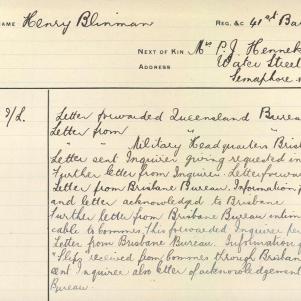 NAME Henry Blinman REG. &C 41st Ba
NEXT OF KIN Mrs P. J. Hennek
ADDRESS Water Street
Semaphore
Letter forwarded Queensland Bureau
Letter from "
" " Military Headquarters Brisb
Letter sent Inquirer giving requested in
Further letter from Inquirer. Letter forw
Letter from Brisbane Bureau. Information
and letter acknowledged to Brisbane
Further letter from Brisbane Bureau
cable to commes, this forwarded Inquirer
Letter from Brisbane Bureau. Information
"Slip" received from commes through Brisban
sent Inquiree also letter of acknowledgement
Bureau.